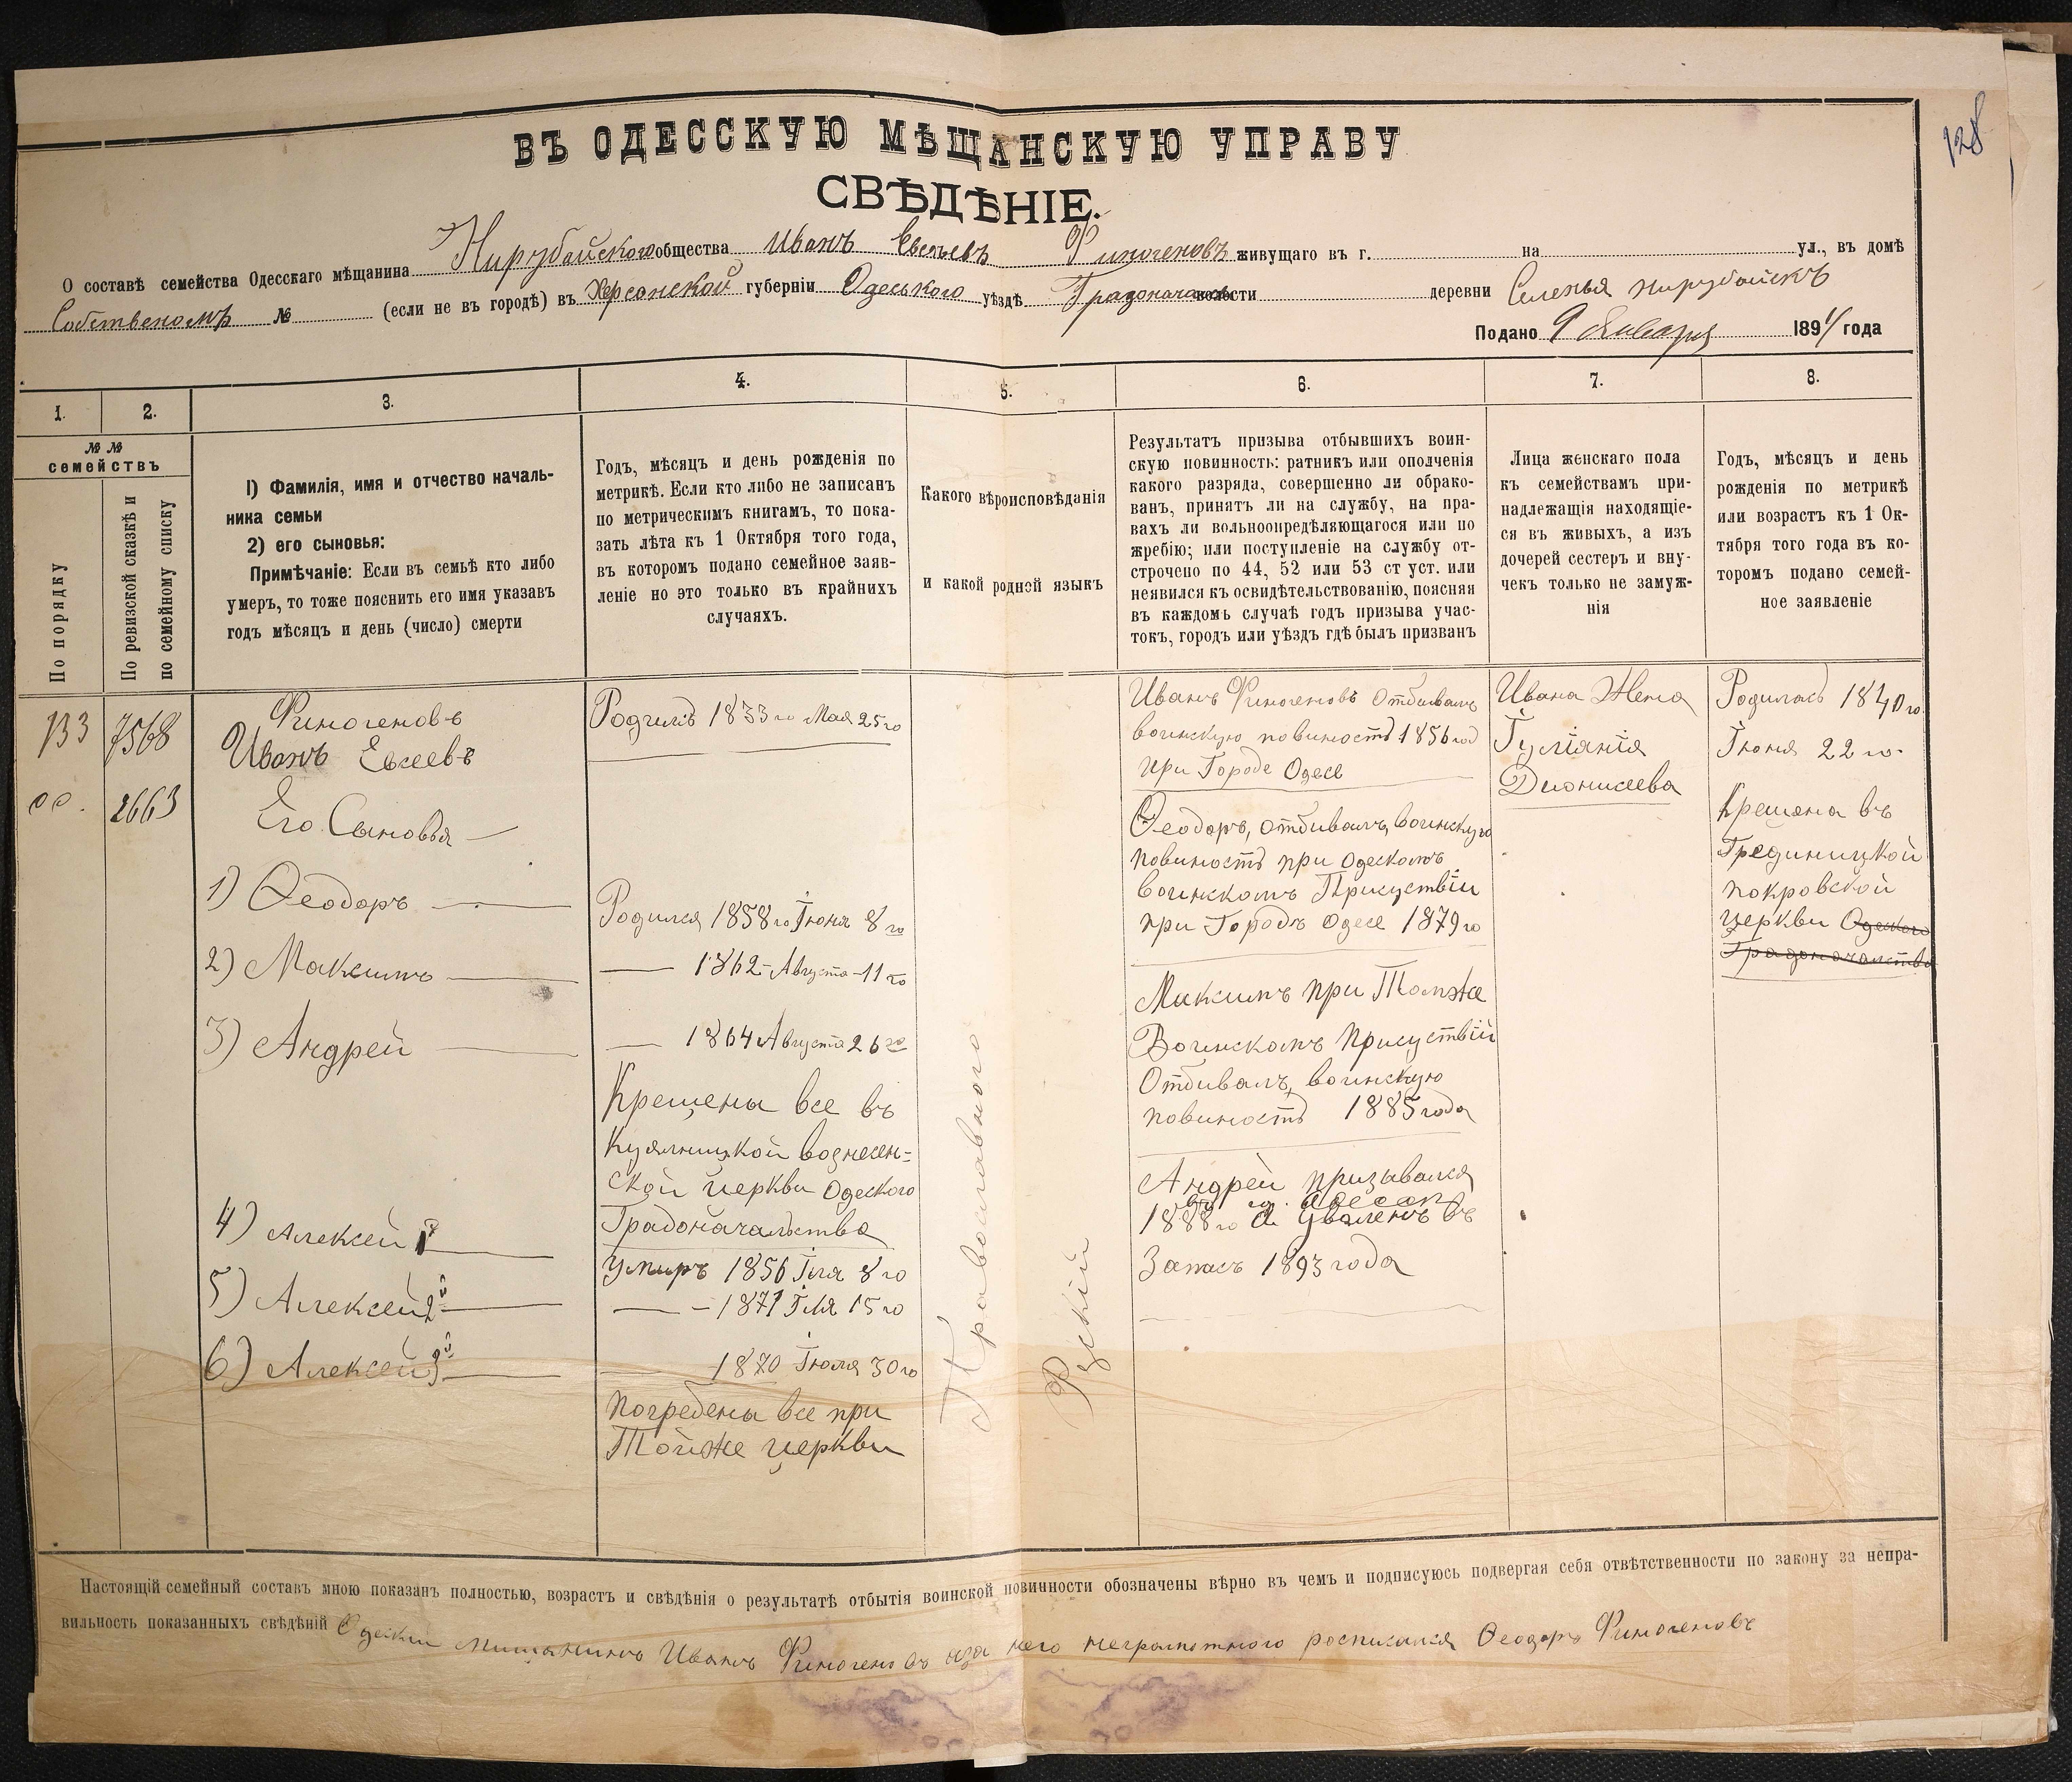 128
ВЪ ОДЕССКУЮ МѢЩАНСКУЮ УПРАВУ
СВѢДѢНІЕ.
О составѣ семейства Одесскаго мѣщанина Нирубайского общества Иванъ Евсѣевъ Финогеновъ живущаго въ г. на ул., въ домѣ
Собственомъ № (если не въ городѣ) въ Херсонской губерніи Одеського уѣздѣ волости деревни Селенья Нирубайскъ
Подано 9 Января 1894 года
1.
2.
3.
4.
5.
6.
7.
8.
№ №
семействъ
По порядку
По ревизской сказкѣ и
по семейному списку
I) Фамилія, имя и отчество началь-
ника семьи
2) его сыновья:
Примѣчаніе: Если въ семьѣ кто либо
умеръ, то тоже пояснить его имя указавъ
годъ мѣсяцъ и день (число) смерти
Годъ, мѣсяцъ и день рожденія по
метрикѣ. Если кто либо не записанъ
по метрическимъ книгамъ, то пока-
зать лѣта къ 1 Октября того года,
въ которомъ подано семейное заяв-
леніе но это только въ крайнихъ
случаяхъ.
Какого вѣроисповѣданія
и какой родной языкъ
Результатъ призыва отбывшихъ воин-
скую повинность: ратникъ или ополченія
какого разряда, совершенно ли обрако-
ванъ, принятъ ли на службу, на пра-
вахъ ли вольноопредѣляющагося или по
жребію; или поступленіе на службу от-
строчено по 44, 52 или 53 ст уст. или
неявился къ освидѣтельствованію, поясняя
въ каждомъ случаѣ годъ призыва учас-
токъ, городъ или уѣздъ гдѣ былъ призванъ
Лица женскаго пола
къ семействамъ при-
надлежащія находящіе-
ся въ живыхъ, а изъ
дочерей сестеръ и вну-
чекъ только не замуж-
нія
Годъ, мѣсяцъ и день
рожденія по метрикѣ
или возрастъ къ 1 Ок-
тября того года въ ко-
торомъ подано семей-
ное заявленіе
133
7568
2663
Финогеновъ
Иванъ Евсеевъ
Его Сыновья
1) Ѳеодоръ
2) Максимъ
3) Андрей
4) Алексей 1й
5) Алексей 2й
6) Алексей 3й
Родилъ 1833го Мая 25го
Родился 1858го Іюня 8го
1862 Августа 11го
1864 Августа 26го
Крещены все въ
Куялницкой вознесен=
ской церкви Одеского
Градоначальства
Умиръ 1856 Іюля 8го
1871 Іюля 15го
1870 Іюля 30го
Погребены все при
Тойже церкви
Православного
Рускій
Иванъ Финогеновъ Отбивалъ
воинскую повиность 1856 год
при Городе Одесе
Ѳеодоръ, отбивалъ воинскую
повиность при Одескомъ
воинскомъ Присуствіи
при Городъ Одесе 1879го
Максимъ при Томже
Воинскомъ Присуствій
Отбивалъ воинскую
повиность 1885 года
Андрей призывался
въ гор. Одессе
1888го А Уваленъ въ
Запасъ 1893 года
Ивана Жена
Гулянія
Дионисева
Родилась 1840го
Іюня 22го
Крещена въ
Градиницкой
Покровской
церкви Одеского
Градоначалства
Настоящій семейный составъ мною показанъ полностью, возрастъ и свѣдѣнія о результатѣ отбытія воинской повинности обозначены вѣрно въ чемъ и подписуюсь подвергая себя отвѣтственности по закону за непра-
вильность показанныхъ свѣдѣній Одескій мищанинъ Иванъ Финогеновъ аза него неграмотного росписался Ѳеодоръ Финогеновъ